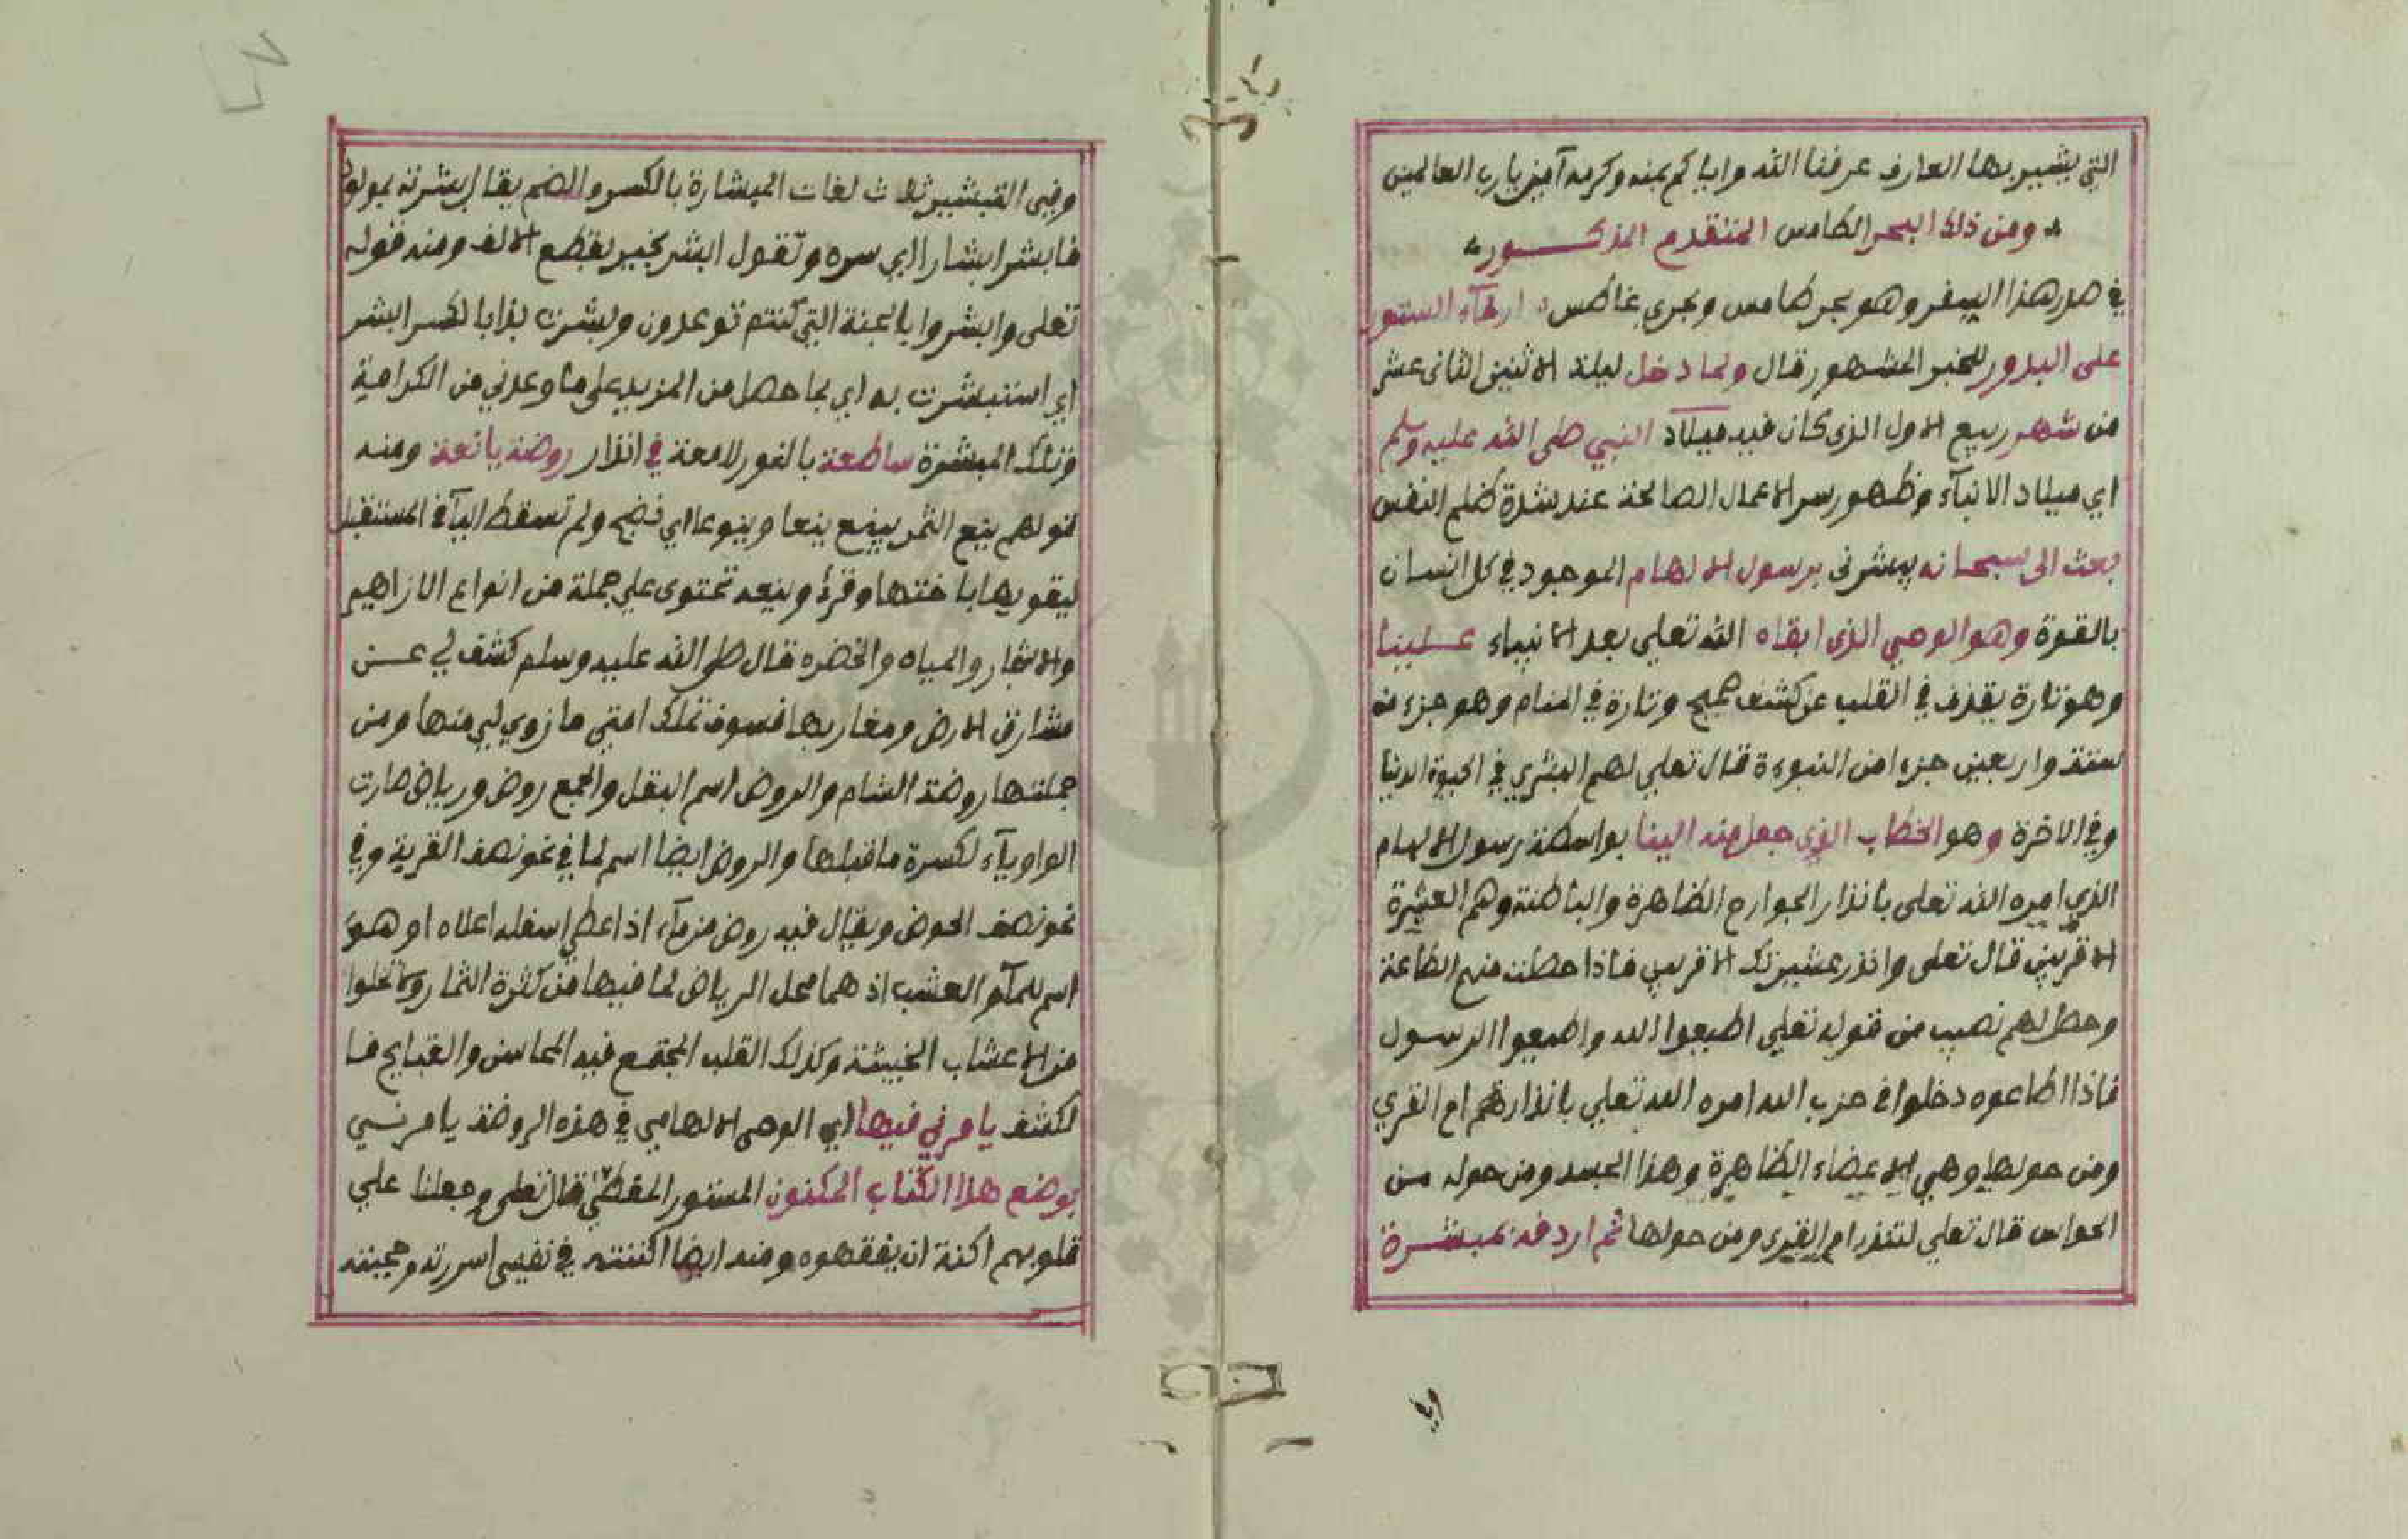 التي يشير بها العارف عرفنا الله واياكم بمنه وكرمه آمين يارب العالمين
ومن ذلك البحر الطامس المتقدم المذكور
في صدر هذا السفر وهو بحر طامس وبحري غاطس ارخآء الستور
على البدور للخبر المشهور قال ولما دخل ليلة الاثنين الثانى عشر
من شهر ربيع الاول الذى كان فيه ميلاد النبي صلى الله عليه وسلم
اي ميلاد الانبآء وظهور سر الاعمال الصالحة عند شدة ظلم النفس
بعث الى سبحانه يبشرنى برسول الالهام الموجود في كل انسان
بالقوة وهو الوحي الذى ابقاه الله تعلى بعد الانبياء علينا
وهو تارة يقذف في القلب عن كشف صحيح وتارة في المنام وهو جزء من
ستة واربعين جزءا من النبوءة قال تعلى لهم البشري في الحيوة الدنيا
وفي الاخرة وهو الخطاب الذي جعل منه الينا بواسطة رسول الالهام
الذي امره الله تعلى بانذار الجوارح الظاهرة والباطنة وهم العشيرة
الاقربين قال تعلى وانذر عشيرتك الاقربين فاذا حصلت منهم الطاعة
وحصل لهم نصيب من قوله تعلى اطيعوا الله واطيعوا الرسول
فاذا اطاعوه دخلوا في حزب الله امره الله تعلي بانذارهم ام القري
ومن حولها وهي الاعضاء الظاهرة وهذا الجسد ومن حوله من
الحواس قال تعلي لتنذر ام القرى ومن حولها ثم اردفه بمبشرة
وفى
وفى التبشير ثلاث لغات البشارة بالكسر والضم يقال بشرته بمولود
فابشر ابشارا اي سره وتقول ابشر بخير بقطع الالف ومنه قوله
تعلى وابشروا بالجنة التي كنتم توعدون وبشرت بذا بالكسر ابشر
اي استبشرت به اي بما حصل من المزيد على ما وعدني من الكرامة
فتلك المبشرة ساطعة بالنور لامعة في انذار روضة يانعة ومنه
قولهم ينع الثمر يينع ينعا وينوعا اي نضج ولم تسقط اليآء في المستقبل
ليقويها باختها وقرئ وينعه تحتوى على جملة من انواع الازاهير
والاشجار والمياه والخضره قال صلى الله عليه وسلم كشف لي عن
مشارق الارض ومغاربها فسوف تملك امتي ما زوي لي منها ومن
جملتها روضة الشام والروض اسم البقل والجمع روض ورياض صارت
الواو يآء لكسرة ما قبلها والروض ايضا اسم لما في نحو نصف القربة وفي
نحو نصف الحوض ويقال فيه روض من مآء اذا غطى اسفله اعلاه او هو
اسم للمآء والعشب اذ هما محل الرياض لما فيها من كثرة الثمار وما تخلوا
من الاعشاب الخبيثة وكذلك القلب المجتمع فيه المحاسن والقبايح فا
لكشف يامرني فيها اي الوحى الالهامي في هذه الروضة يامرنى
بوضع هذا الكتاب المكنون المستور المغطى قال تعلى وجعلنا علي
قلوبهم اكنة ان يفقهوه ومنه ايضا اكننته في نفسي اسررته وحجبته